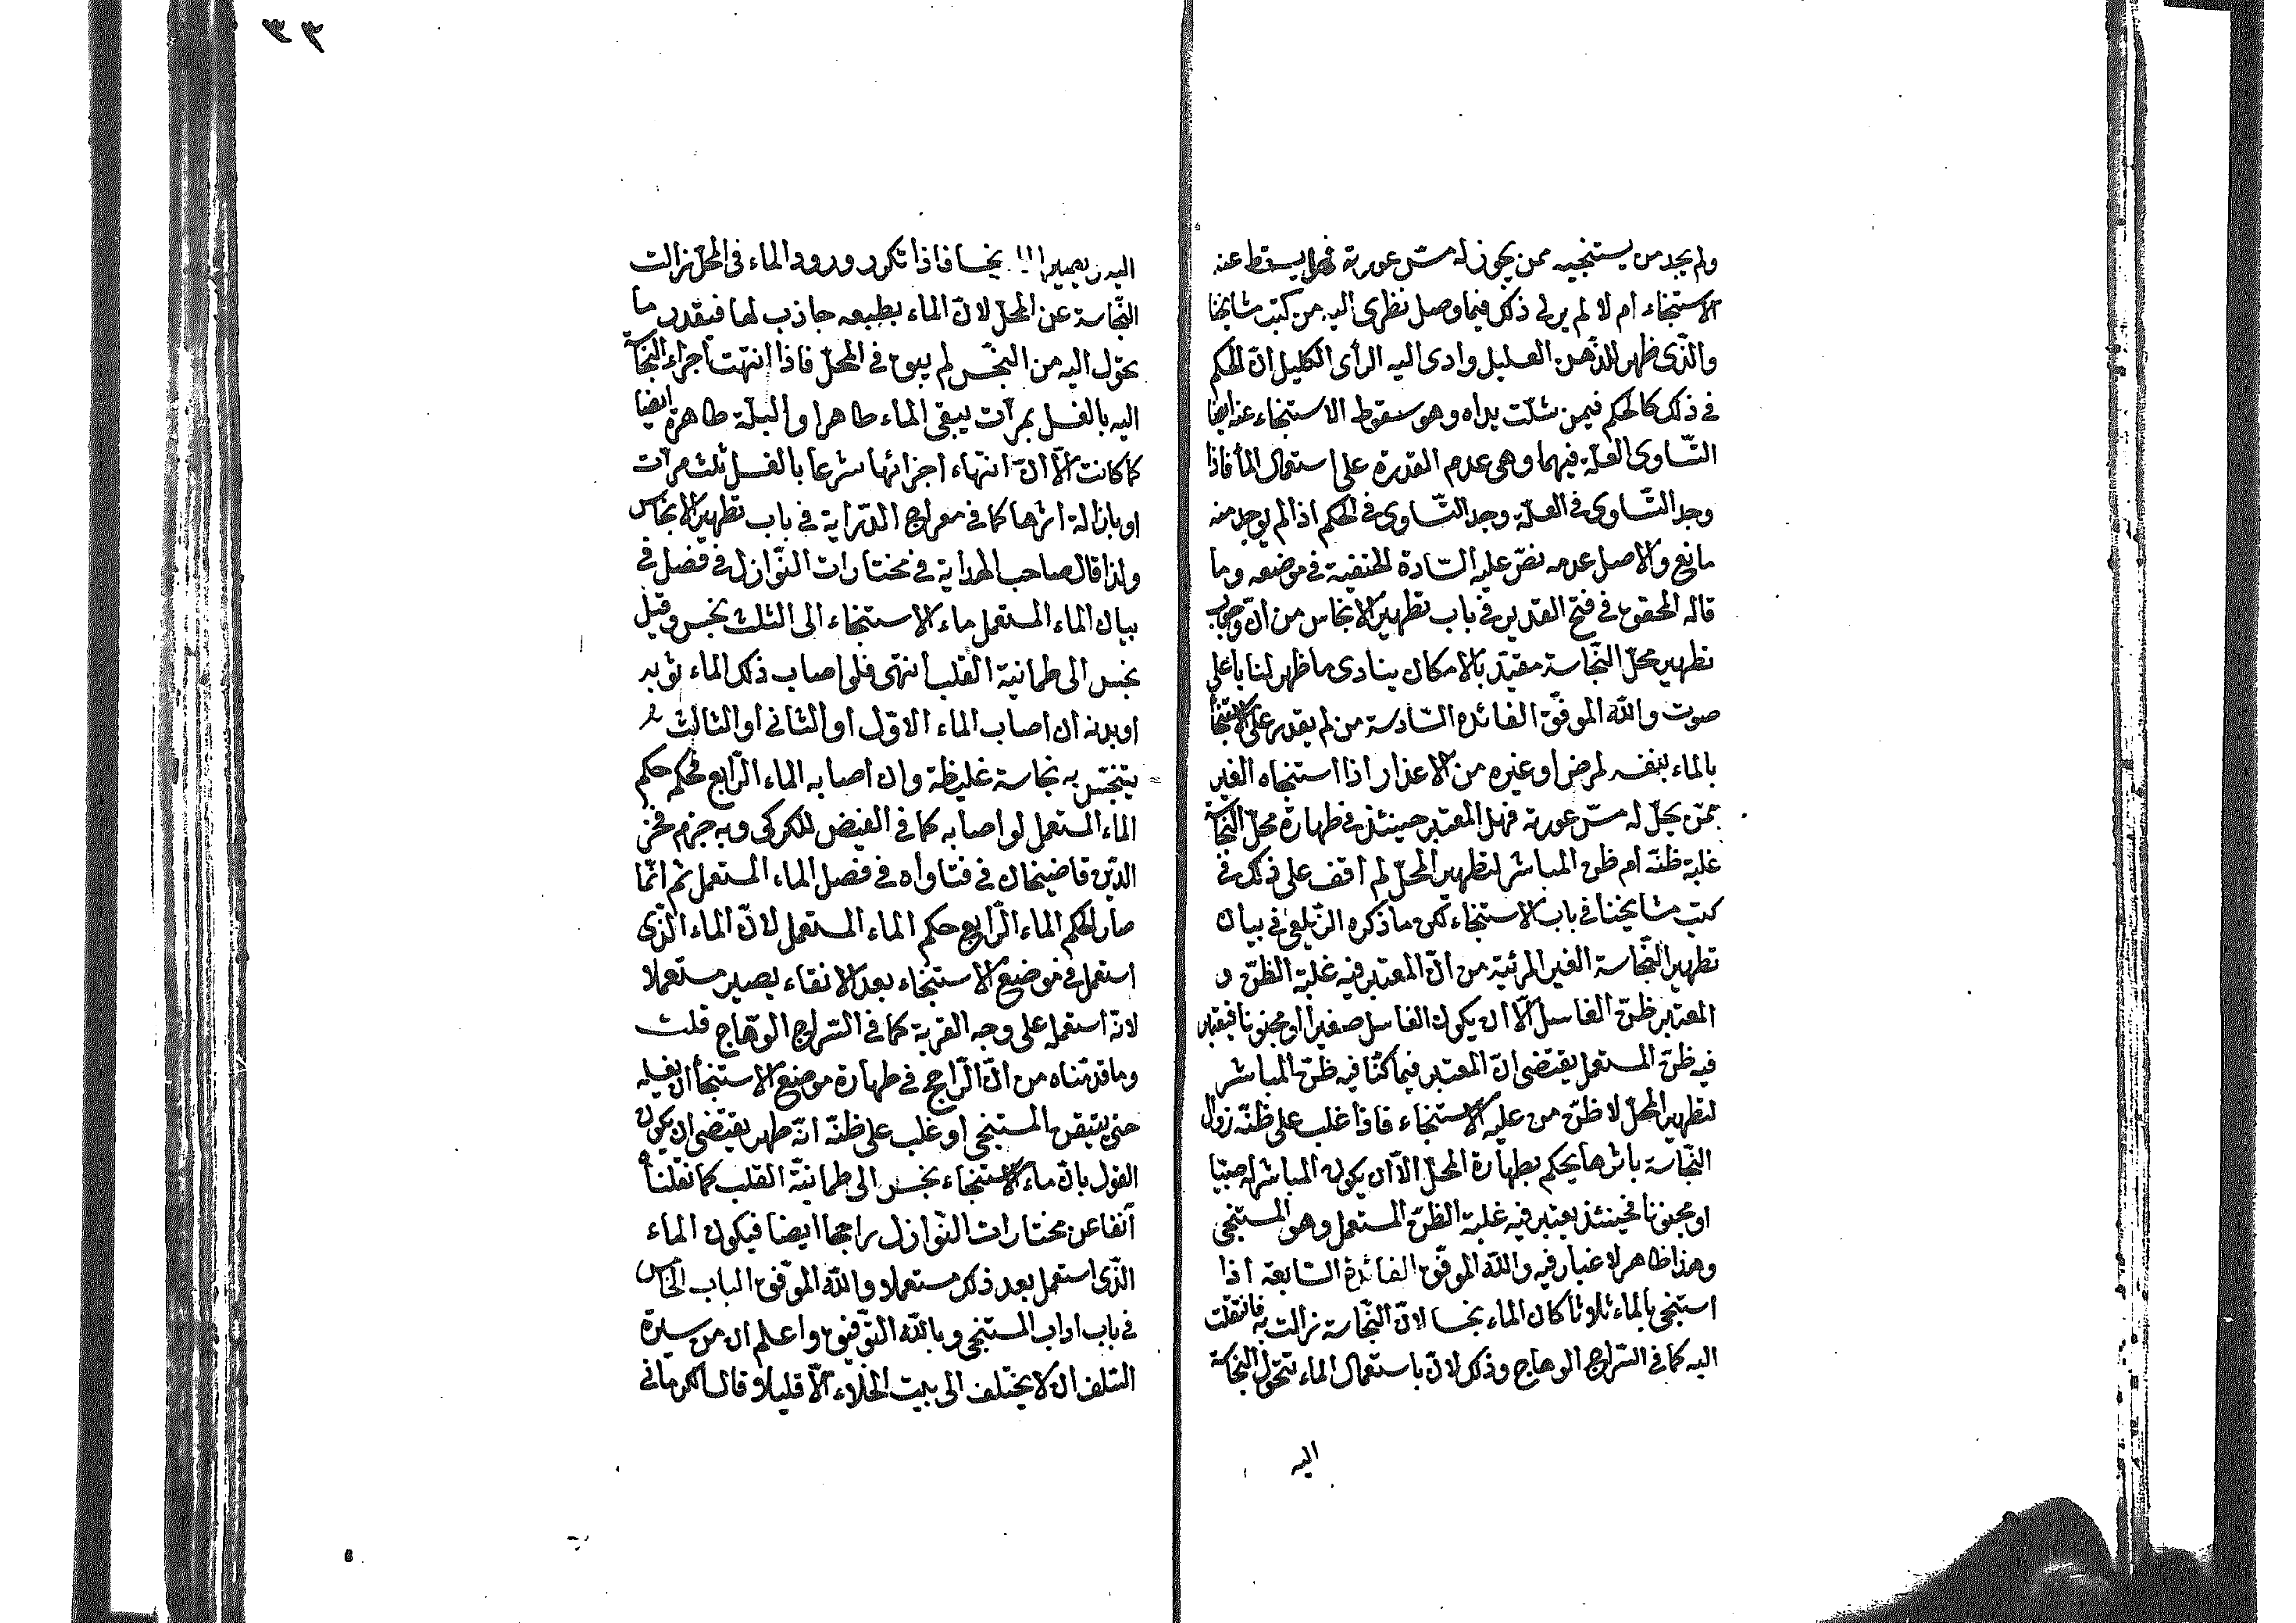 ولم يجد من يستنجيه ممن يجوز له مسّ عورته فهل يسقط عنه
الاستنجاء ام لا لم يرلى ذلك فيما وصل نظرى اليه من كتب مشايخنا
والّذى ظهر للذّهن العليل وادى اليه الرأى الكليل انّ الحكم
فى ذلك كالحكم فيمن شلّت يداه وهو سقوط الاستنجاء عنه ايضا
التّساوى العلّة فيهما وهى عدم القدرة على استعمال الماء فاذا
وجد التّساوى فى العلّة وجد التّساوى فى الحكم اذا لم يوجد منه
مانع والاصل عدمه نصّ عليه السّادة الحنفية فى موضعه وما
قاله المحقق فى فتح القدير فى باب تطهير الانجاس من انّ وجوب
تطهير محلّ النّجاسة مقيّد بالامكان ينادى ما ظهر لنا باعلى
صوت والله الموفّق الفائده السّادسة من لم يقدر على الاستنجاء
بالماء بنفسه لمرض او غيره من الاعذار اذا استنجاه الغير
ممّن يحلّ له مسّ عورته فهل المعتبر حينئذ فى طهارة محلّ النّجاسة
غلبة ظنّه ام ظن المباشر لتطهير المحلّ لم اقف على ذلك فى
كتب مشايخنا فى باب الاستنجاء لكن ما ذكره الزّيلعى فى بيان
تطهير النّجاسة الغير المرئية من انّ المعتبر فيه غلبة الظنّ و
المعتبر ظنّ الغاسل الّا ان يكون الغاسل صغيرا او مجنونا فيعتبر
فيه ظنّ المستعمل يقتضى انّ المعتبر فيما كنّا فيه ظنّ المباشر
لتطهير المحلّ لا ظنّ من عليه الاستنجاء فاذا غلب على ظنّه زوال
النّجاسة باثرها يحكم بطهارة المحلّ الّا ان يكون المباشر له صبيّا
او مجنونا فحينئذ يعتبر فيه غلبة الظنّ المستعمل وهو المستنجى
وهذا ظاهر لا غبار فيه والله الموفّق الفائدة السّابعة اذا
استنجى بالماء ثلاثا كان الماء نجسا لانّ النّجاسة زالت به فانتقلت
اليه كما فى السّراج الوهاج وذلك لانّ باستعمال الماء تتحوّل النّجاسة
اليه
٣٣
اليه نجسا فاذا تكرر ورود الماء فى المحلّ زالت
النّجاسة عن المحلّ لانّ الماء بطبعه جاذب لها فيقدر ما
تحوّل اليه من النّجس لم يبق فى المحلّ فاذا انتهت اجزاء النّجاسة
اليه بالغسل بمرّات يبقى الماء طاهرا والبلّة طاهرة ايضا
كما كانت الّا انّ انتهاء اجزائها شرعا بالغسل ثلث مرّات
او بازالة اثرها كما فى معراج الدّراية فى باب تطهير الانجاس
ولذا قال صاحب الهداية فى مختارات النّوازل فى فصل فى
بيان الماء المستعمل ماء الاستنجاء الى الثلث نجس وقيل
نجس الى طمانية القلب انتهى فلو اصاب ذلك الماء ثوبه
او بدنه ان اصاب الماء الاوّل او الثانى او الثالث
يتنجّس به نجاسة غليظة وان اصابه الماء الرّابع فحكم حكم
الماء المستعمل لو اصابه كما فى الفيض للكركى وبه جزم فخر
الدّين قاضيخان فى فتاواه فى فصل الماء المستعمل ثم انّما
صار الحكم الماء الرّابع حكم الماء المستعمل لانّ الماء الّذى
استعمل فى موضع الاستنجاء بعد الانقاء يصير مستعملا
لانّه استعمله على وجه القربة كما فى السّراج الوهّاج قلت
وما قدّمناه من انّ الرّاجح فى طهارة موضع الاستنجأ ان يغسله
حتى يتيقن المستنجى او غلب على ظنّه انّه طهر يقتضى ان يكون
القول بانّ ماء الاستنجاء نجس الى طمانيّة القلب كما نقلناه
آنفا عن مختارات النّوازل راجحا ايضا فيكون الماء
الّذى استعمل بعد ذلك مستعملا والله الموّفق الباب الخامس
فى باب اداب المستنجى وبالله التّوفيق واعلم ان من سيرة
السّلف ان لا يختلف الى بيت الخلاء الّا قليلا وقال الكرمانى